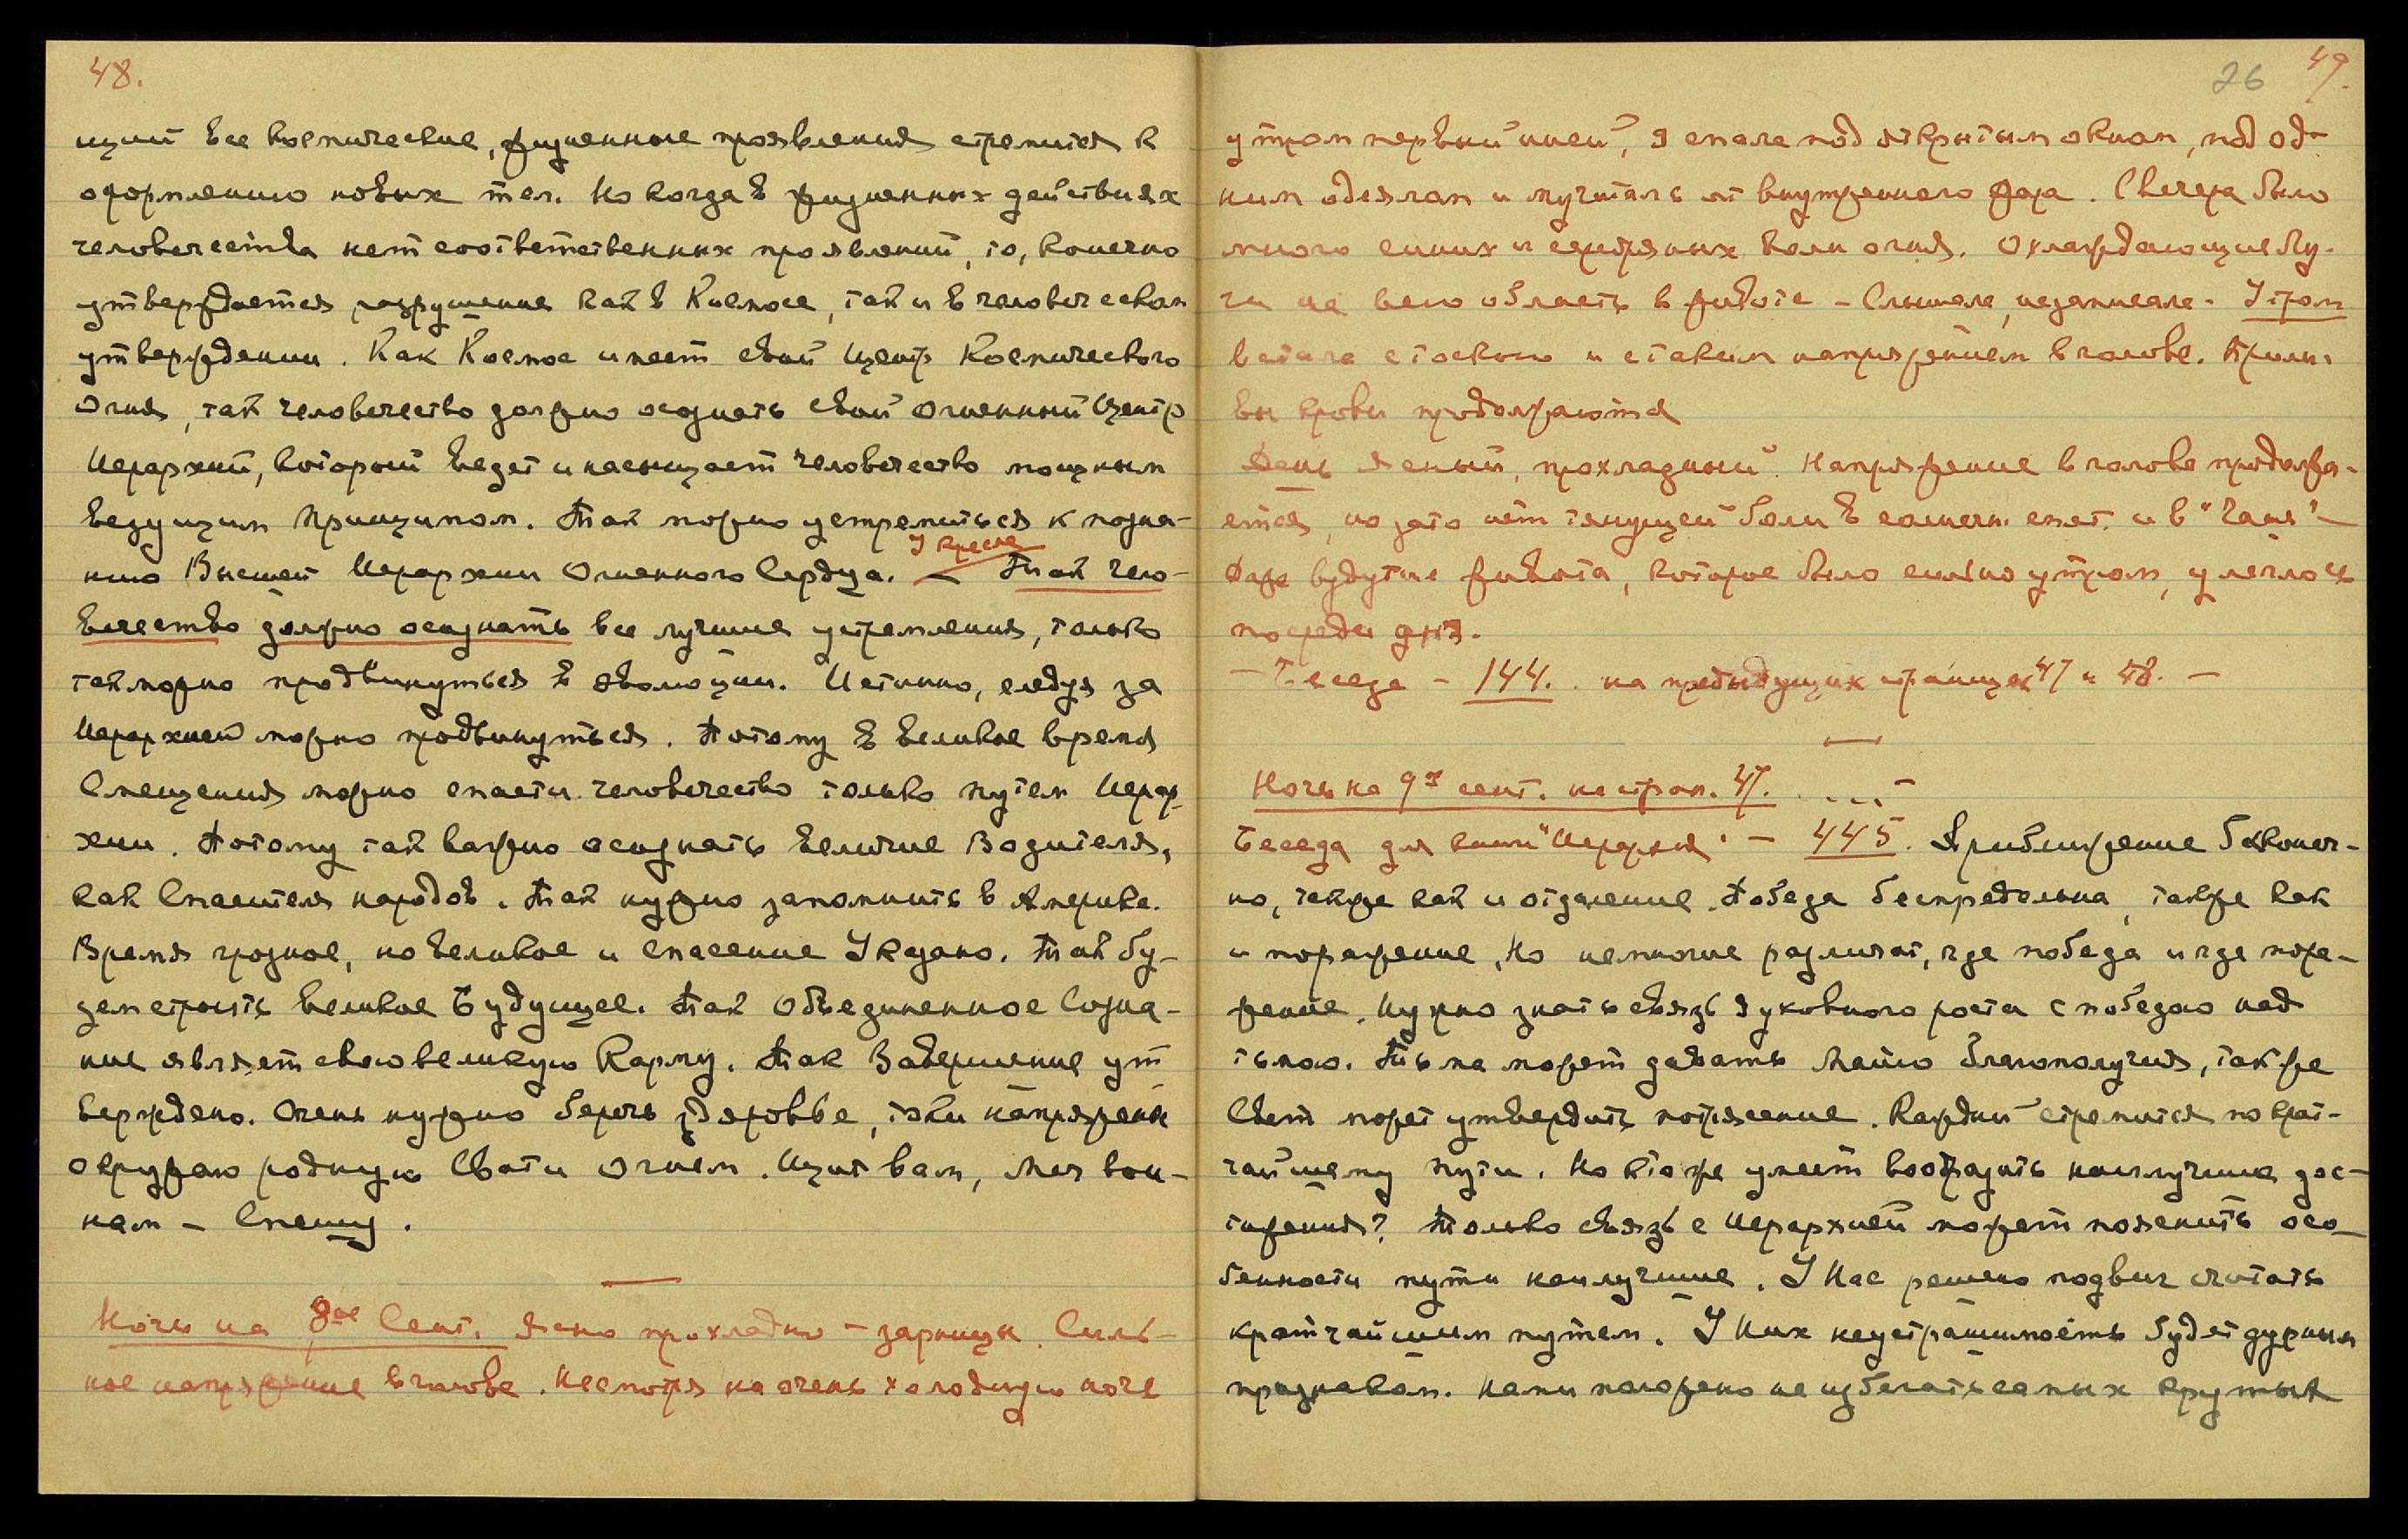 48.
щий все космические, жизненные проявления стремится к
оформлению новых тел. Но когда в жизненных действиях
человечества нет соответственных проявлений, то, конечно
утверждается разрушение как в Космосе, так и в человеческом
утверждении. Как Космос имеет свой центр Космического
Огня, так человечество должно осознать свой огненный Центр
Иерархии, который ведет и насыщает человечество мощным
ведущим Принципом. Так можно устремиться к позна-
У кресла
нию Высшей Иерархии Огненного Сердца. — Так чело-
вечество должно осознать все лучшие устремления, только
так можно продвинуться в эволюции. Истинно, следуя за
Иерархией можно продвинуться. Потому в великое время
Смещения можно спасти человечество только путем Иерар-
хии. Потому так важно осознать величие Водителя,
как Спасителя народов. Так нужно запомнить в Америке.
Время грозное, но великое и спасение Указано. Так бу-
дем строить великое Будущее. Так Объединенное Созна-
ние являет свою великую Карму. Так Завершение ут-
верждено. Очень нужно беречь здоровье, токи напряжены
окружаю родную Свати Огнем. Щит вам, Меч вои-
нам — Спешу.
Ночь на 8ое Сент. Ясно прохладно — зарницы. Силь-
ное напряжение в голове. Несмотря на очень холодную ночь
26 49.
утром первый "иней", я спала под открытым окном, под од-
ним одеялом и мучилась от внутреннего жара. С вечера было
много синих и серебряных волн огня. Охлаждающие Лу-
чи на всю область в животе — Слышала, не записала. Утром
встала с тоскою и с таким напряжением в голове. Прили-
вы крови продолжаются
День ясный, прохладный. Напряжение в голове продолжа-
ется, но зато нет тянущей боли в солнечн. сплет. и в "Чаше" —
Даже вздутие живота, которое было сильно утром, улеглось
посреди дня.
— Беседа — 144. на предыдущих страницах 47 и 48. —
Ночь на 9ое сент. на стран. 47. . . . —
Беседа для книги "Иерархия" — 445. Приближение бесконеч-
но, также как и отдаление. Победа беспредельна, также как
и поражение, Но немногие различат, где победа и где пора-
жение. Нужно знать связь духовного роста с победою над
тьмою. Тьма может давать Майю благополучия, также
Свет может утвердить потрясение. Каждый стремится по крат-
чайшему пути. Но кто же умеет вообразить наилучшие дос-
тижения? Только связь с Иерархией может пояснить осо-
бенности пути наилучшие. У Нас решено подвиг считать
кратчайшим путем. У Них неустрашимость будет дурным
признаком. Нами положено не избегать самых крутых